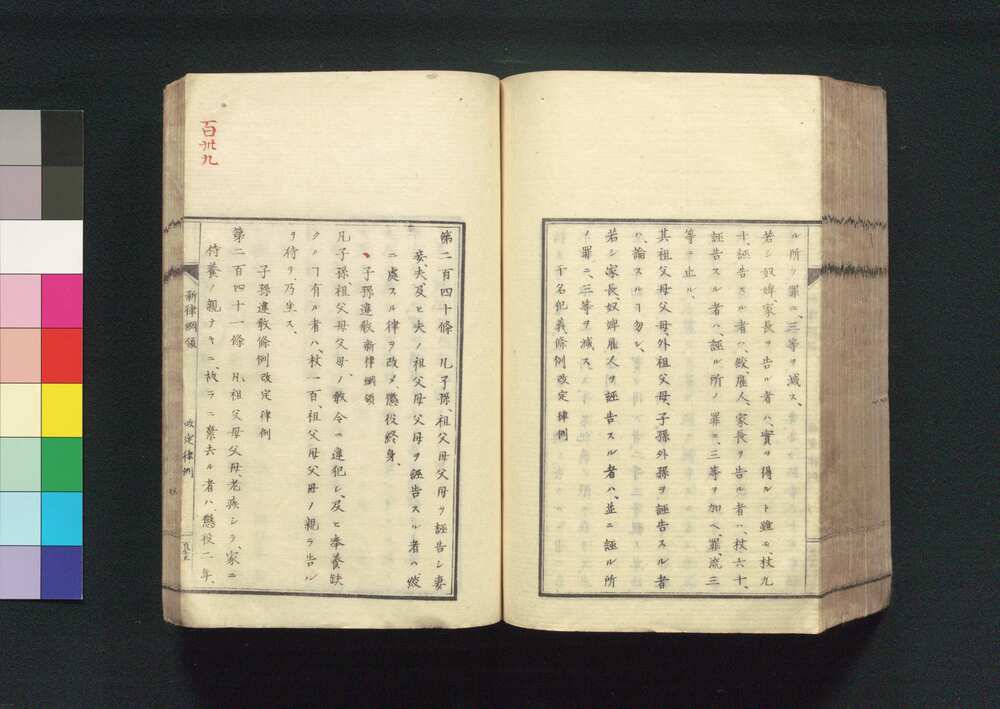 ル所ノ罪ニ、三等ヲ減ス、
若シ奴婢、家長ヲ告ル者ハ、實ヲ得ルト雖モ、杖九
十、誣告スル者ハ、絞、雇人、家長ヲ告ル者ハ、杖六十、
誣告スル者ハ、誣ル所ノ罪ニ、三等ヲ加ヘ、罪、流三
等ニ止ル、
其祖父母父母、外祖父母、子孫外孫ヲ誣告スル者
ハ、論スルヿ勿レ、
若シ家長、奴婢雇人ヲ誣告スル者ハ、並ニ誣ル所
ノ罪ニ、三等ヲ減ス、
干名犯義條例 改定律例
第二百四十條 凡子孫、祖父母父母ヲ誣告シ妻
妾、夫、及ヒ夫ノ祖父母父母ヲ誣告スル者ハ、絞
ニ處スル律ヲ改メ、懲役終身、
子孫違教 新律綱領
凡子孫、祖父母父母ノ教令ニ違犯シ、及ヒ奉養缺
クルヿ有ル者ハ、杖一百、祖父母父母ノ親ラ告ル
ヲ待ヲ、乃生ス、
子孫違教條例 改定律例
第二百四十一條 凡祖父母父母、老疾シテ、家ニ
侍養ノ親ナキニ、故ラニ棄去ル者ハ、懲役二年、
新律綱領
改定律例
百卅九